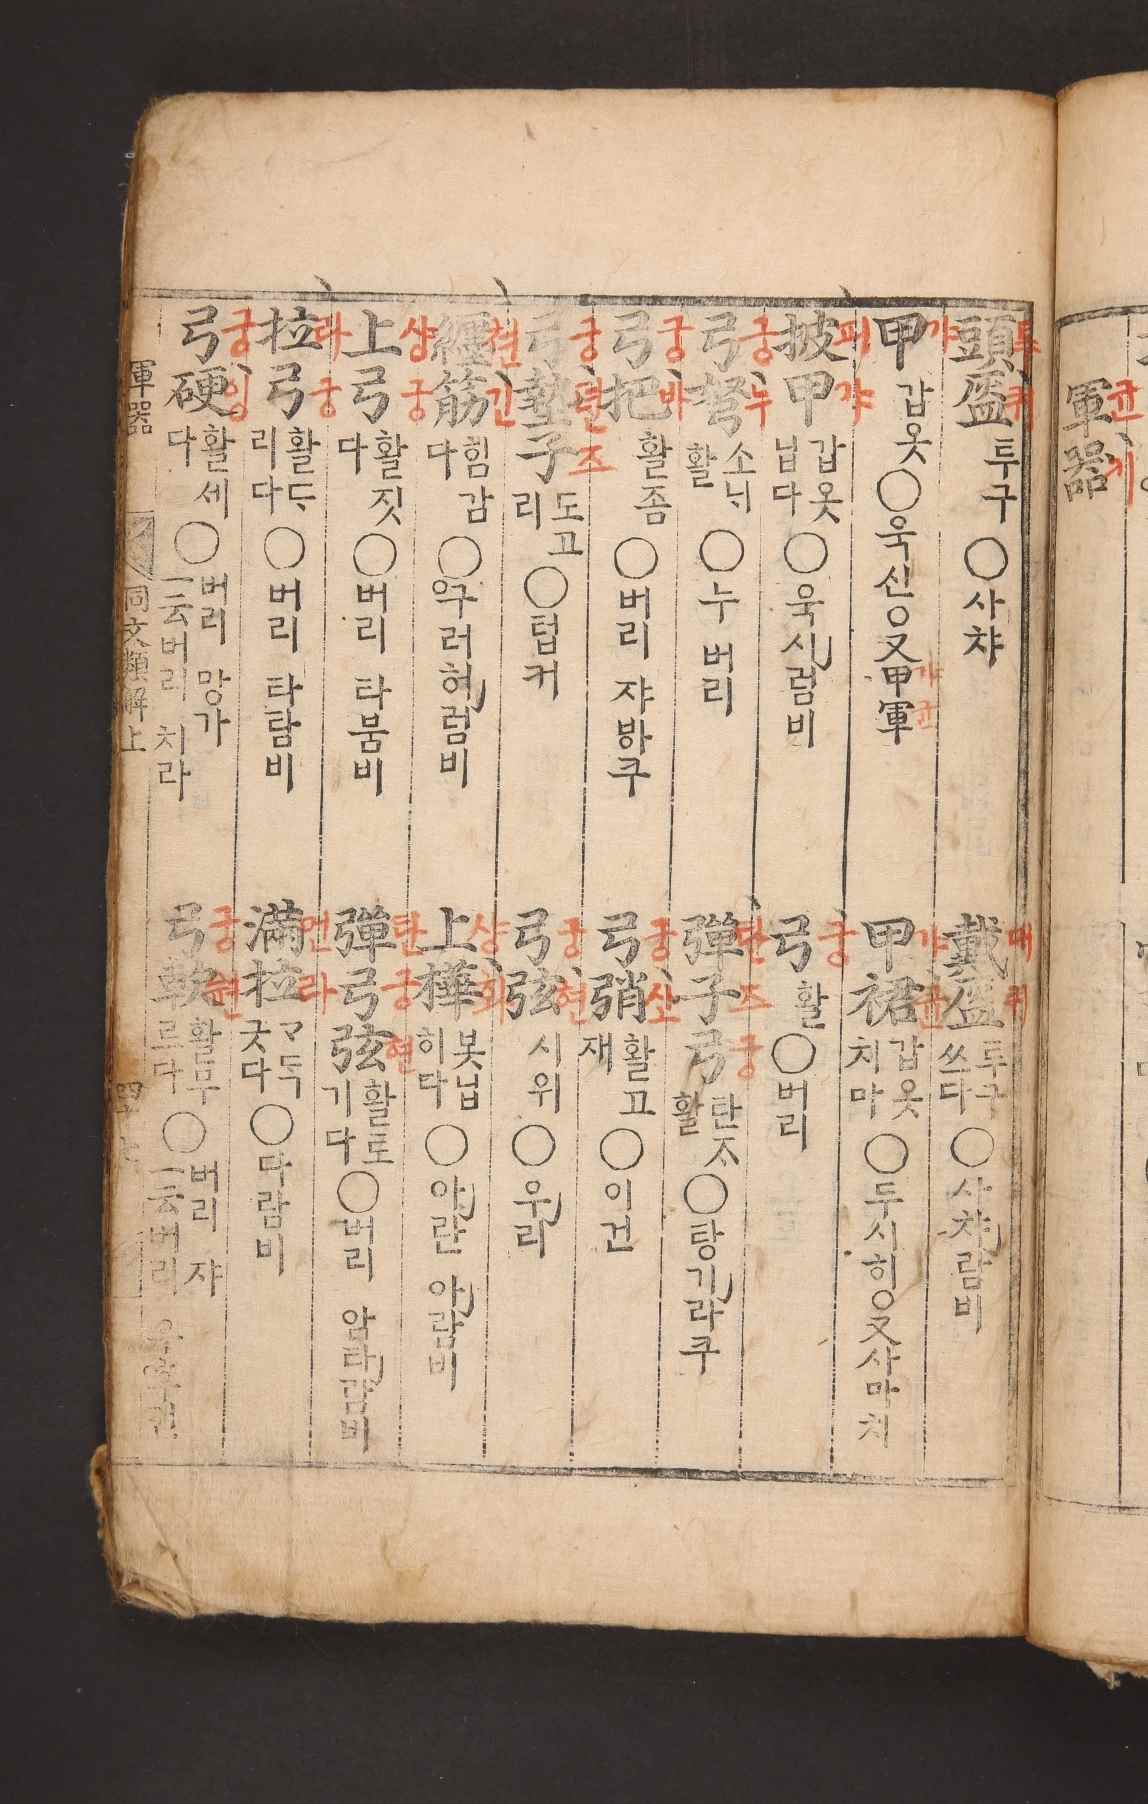 軍器
頭盔 투구 ○사챠
戴盔 투구쓰다 ○사챠람비
甲 갑옷 ○욱신○又甲軍
甲裙 갑옷치마 ○두시히○又사마치
披甲 갑옷닙다 ○욱시럼비
弓 활 ○버리
弓弩 소늬활 ○누 버리
彈子弓 탄ᄌᆞ활 ○탕기라쿠
弓把 활좀 ○버리 쟈바쿠
弓弰 활고재 ○이건
弓墊子 도고리 ○텁커
弓弦 시위 ○우리
纏筋 힘감다 ○우러허럼비
上樺 봇닙히다 ○아란 아람비
上弓 활짓다 ○버리 타붐비
彈弓弦 활토기다 ○버리
拉弓 활ᄃᆞ리다 ○버리 타탐비
滿拉 ᄀᆞ득긋다 ○다람비
弓硬 활세다 ○버리 망가 一云버리 치라
弓軟 활무르다 ○버리 쟈 一云버리
軍器 同文類解上